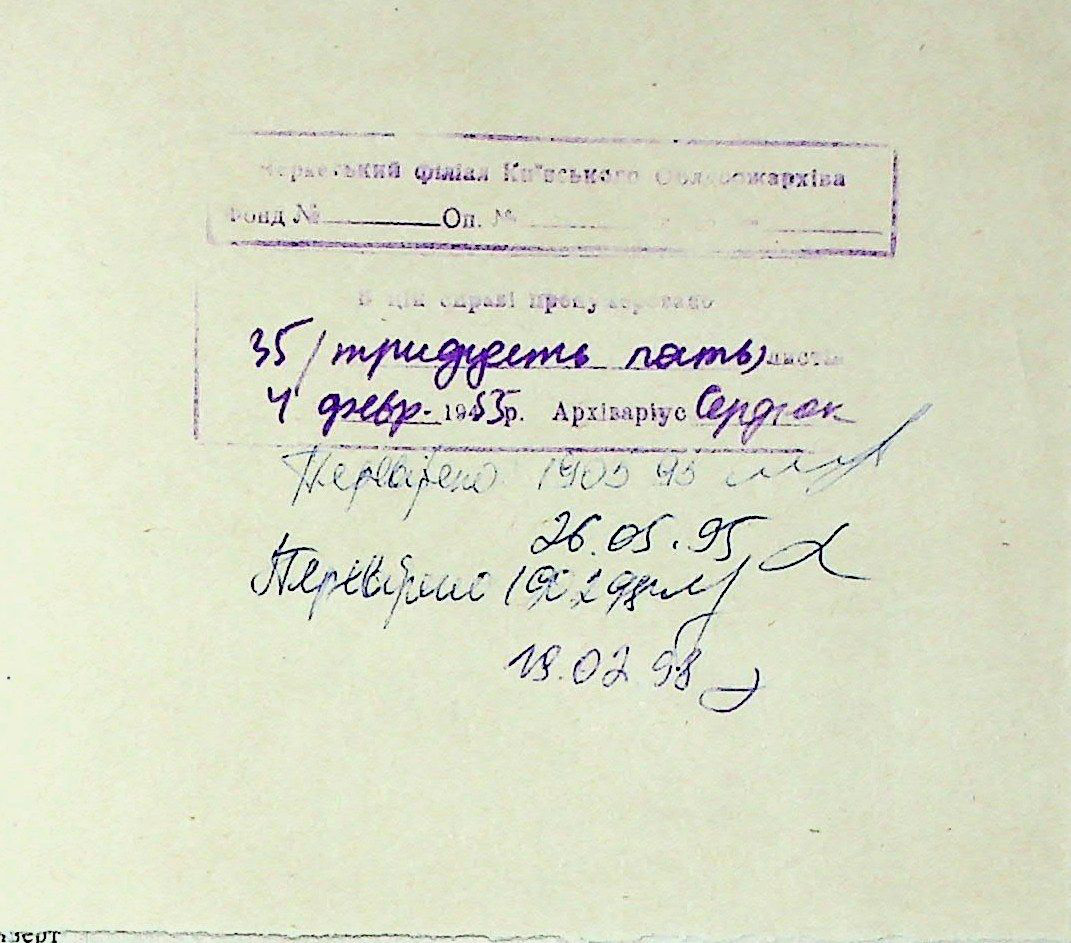 Черкаський філіал Київського Облдержархіва
Фонд № Оп. №
В цій справі пронумеровано
35 (тридцать пять) листів
4 февр. 1955 р. Архіваріус Сердюк
Перевірено
26.05.95
Перевірено
19.02 98